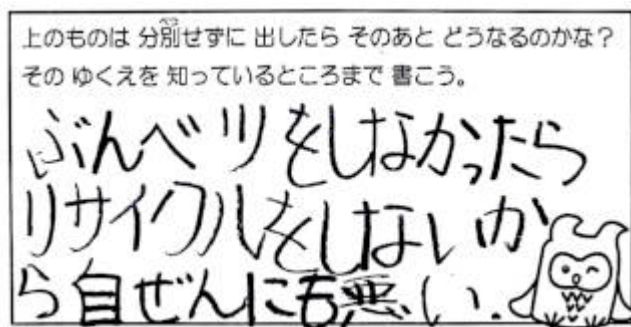 上のものは 分別せずに 出したら そのあと どうなるのかな?
その ゆくえを 知っているところまで 書こう。
ぶんベツをしなかったら
リサイクルをしないか
ら自ぜんにも悪い.